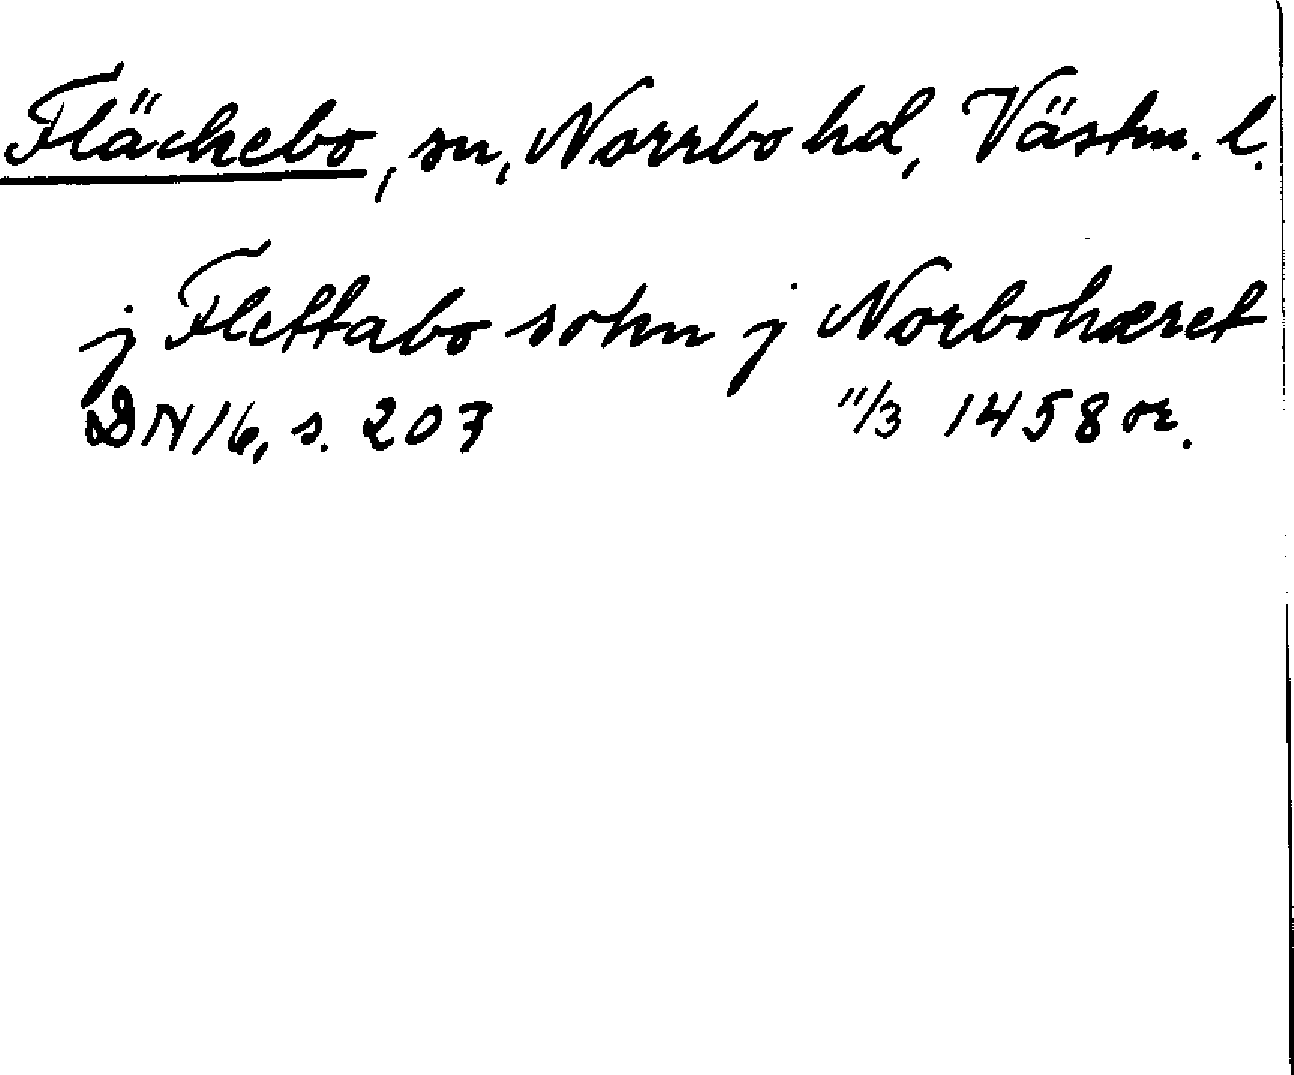 Fläckebo, sn, Norrbo hd, Västm. l.
j Flettabo sokn j Norbohæret
DN 16, s. 207 11/3 1458 or.